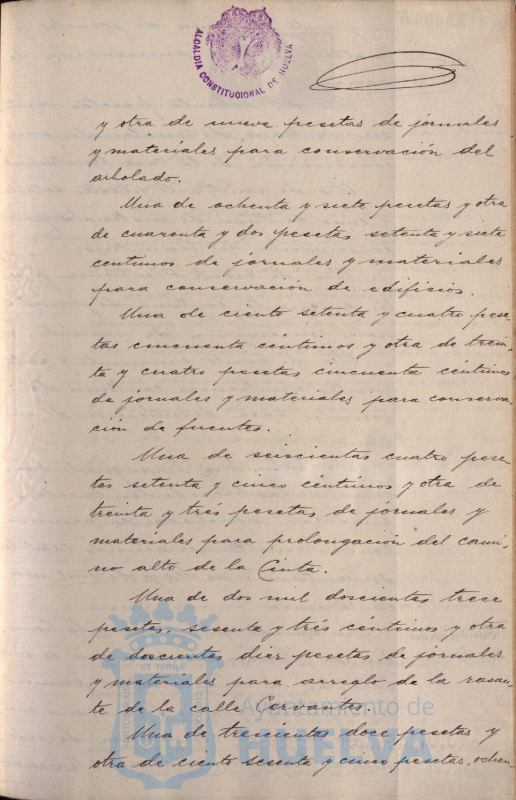 ALCALDIA CONSTITUCIONAL DE HUELVA
y otra de nueve pesetas de jornales
y materiales para conservación del
arbolado.
Una de ochenta y siete pesetas y otra
de cuarenta y dos pesetas setenta y siete
centimos de jornales y materiales
para conservación de edificios.
Una de ciento setenta y cuatro pese-
tas cincuenta céntimos y otra de trein-
ta y cuatro pesetas cincuenta céntimos
de jornales y materiales para conserva-
ción de fuentes.
Una de seiscientas cuatro pese-
tas setenta y cinco céntimos y otra de
treinta y trés pesetas de jornales y
materiales para prolongación del cami-
no alto de la Cinta.
Una de dos mil doscientas trece
pesetas, sesenta y trés céntimos y otra
de doscientas diez pesetas de jornales
y materiales para arreglo de la rasan-
te de la calle Cervantes.
Una de trescientas doce pesetas y
otra de ciento sesenta y cinco pesetas, ochen
ET TERRÆ
Ayuntamiento de
HUELVA